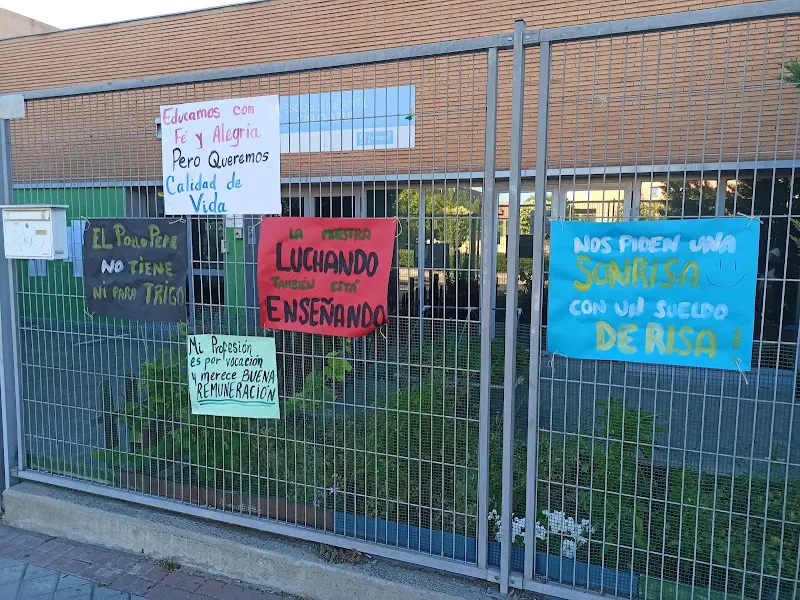 Educamos con
Fé y Alegría
Pero Queremos
Calidad de
Vida
EL Pollo Pepe
NO TIENE
NI PARA TRIGO
LA MAESTRA
LUCHANDO
TAMBIÉN ESTÁ
ENSEÑANDO
Mi Profesión
es por vocación
y merece BUENA
REMUNERACIÓN
NOS PIDEN UNA
SONRISA
CON UN SUELDO
DE RISA!